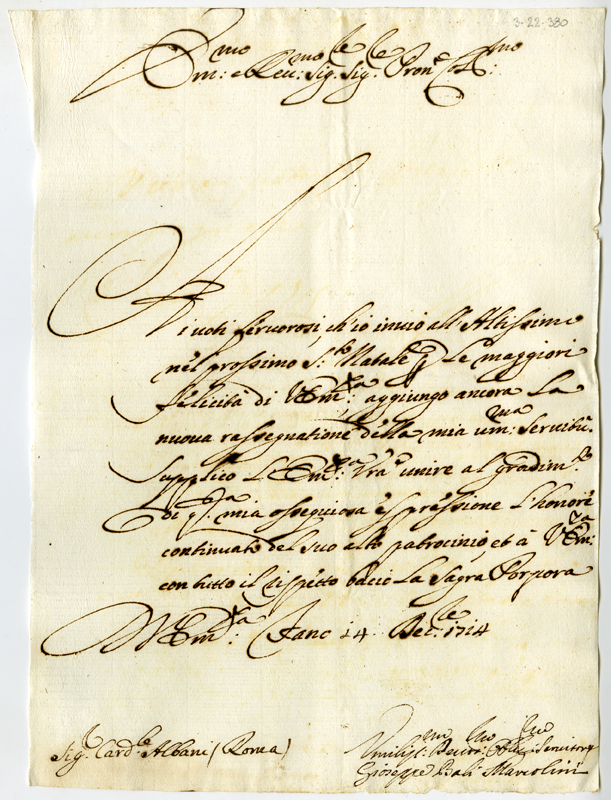 3-22-380
Em:mo e Reu:mo Sig.le Sig.le Pron.e Col:mo
Ai uoti feruorosi, ch'io inuio all'Altissimo
nel prossimo S.to Natale p le maggiori
felicità di V Em:za, aggiungo ancora la
nuoua rassegnatione della mia um:ma Seruitù.
Supplico l'Em:za Vra unire al gradim.to
di q.ta mia ossequiosa espressione l'honore
continuato del suo alto patrocinio, et à V Em:za
con tutto il rispetto bacio la Sagra Porpora
D V Em:za Fano 14 Dec.le 1714
Sig.le Card.le Albani (Roma)
Umiliss:mo Deuot:mo Obl:mo Seruitore
Giuseppe Balì Marcolini